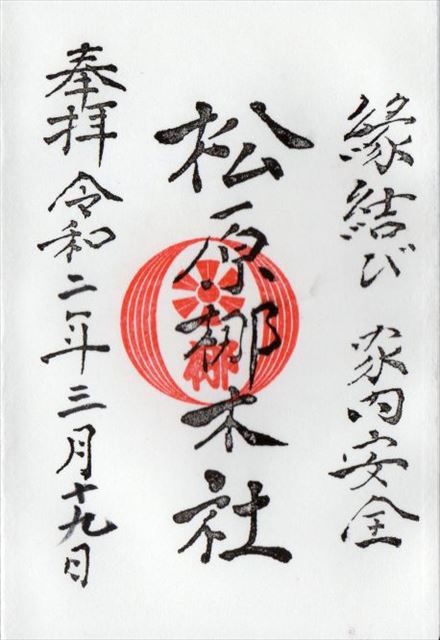 縁結び 家内安全
松原梛木社
奉拝 令和二年三月十九日
梛